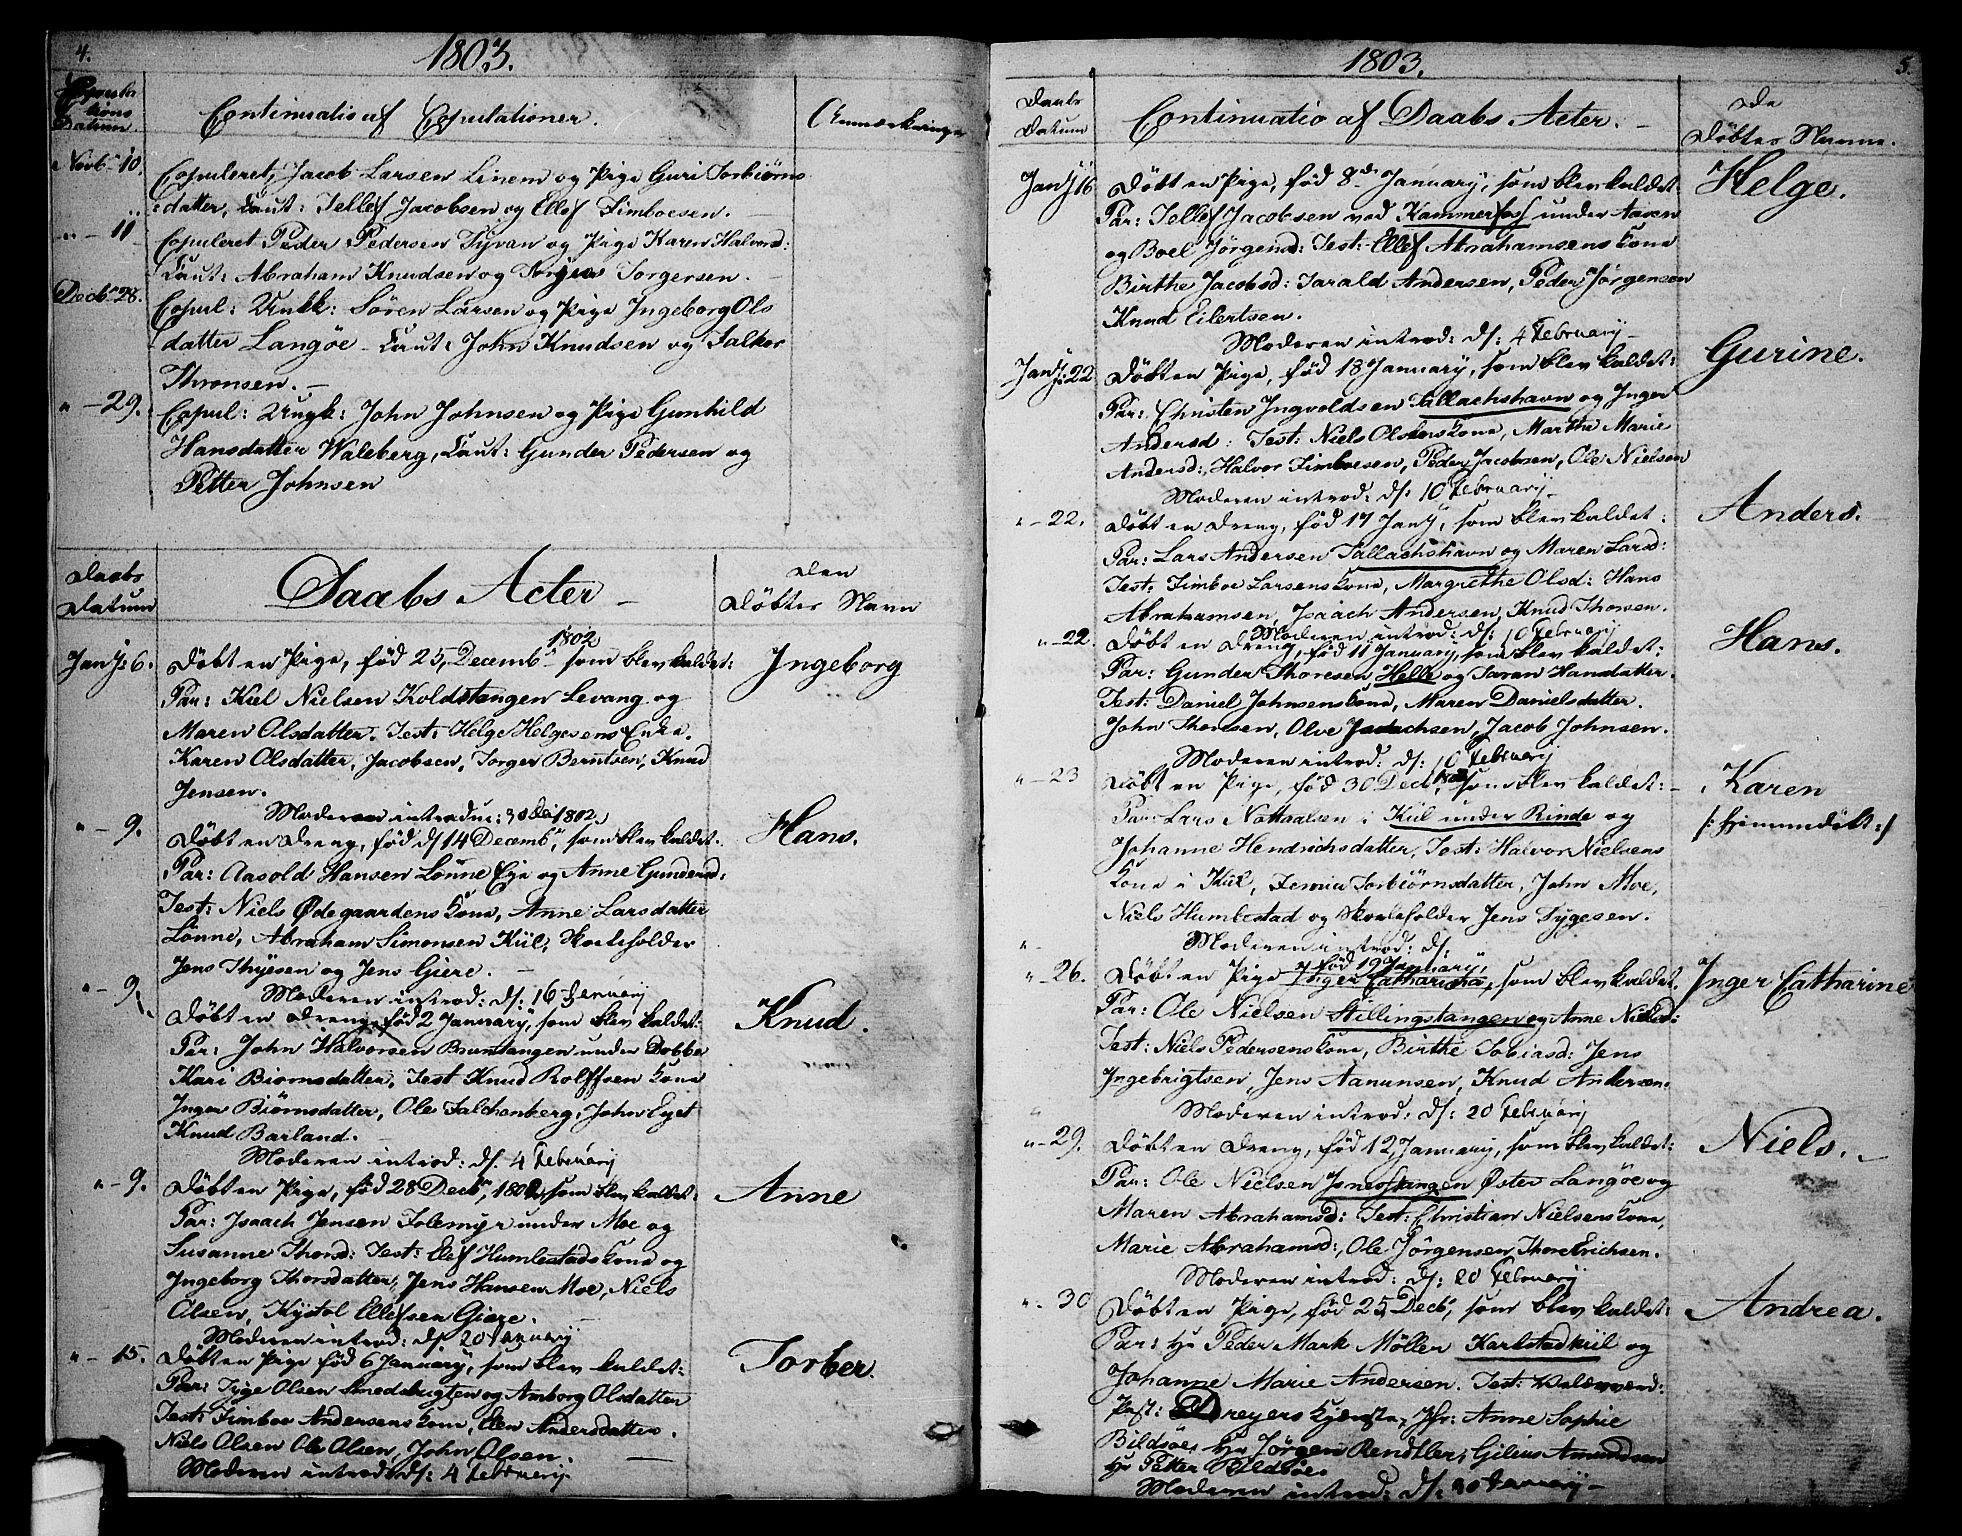 4.
1803.
Datum
Continuatio af Copulationer.
Anmærkninger
Novb 10.
Copuleret, Jacob Larsen Linem og Pige Guri Torbiørns
datter, Caut: Tellef Jacobsen og Ellef Fimboesen.
" - 11
Copuleret Peder Pedersen Tyvan og Pige Karen Halvord:
Caut: Abraham Knudsen og Torgersen.
Decb 28.
Copul: Unkk: Sören Larsen og Pige Ingeborg Ols
datter Langöe - Caut: John Knudsen og Falkor
Thronsen. -
" - 29.
Copul: Ungk: John Johnsen og Pige Gunhild
Hansdatter Waleberg, Caut: Gunder Pedersen og
Petter Johnsen
Daabs
Datum
Daabs Acter -
Den
Döbtes Navn
Jany: 6.
1802
Döbt en Pige, föd 25, Decemb som blev kaldet:
Ingeborg
Par: Kiel Nielsen Koldstangen Levang og
Maren Olsdatter. Test: Helge Helgesens Enke.
Karen Olsdatter, Jacobsen, Torger Berntsen, Knud
Jensen.
Moderen introdu: 30 1802.
" - 9.
Döbt en Dreng, föd d 14 Decemb, som blev kaldet:
Hans.
Par: Aasold Hansen Lönne Eje og Anne Gundersd:
Test: Niels Ødegaardens Kone, Anne Larsdatter
Lönne, Abraham Simonsen Kiil, Skoleholder
Jens Thyesen og Jens Giere. -
Moderen introd: d: 16 January
" - 9.
Döbt en Dreng, föd 2 January, som blev kaldet:
Knud.
Par: John Halvorsen Bruntangen under Dobbe
Kari Biörnsdatter, Test Knud Rolffsen Kone
Inger Biörnsdatter, Ole Falchenberg, John Eget
Knud Barland. -
Moderen introd: d: 4 February
" - 9.
Döbt en Pige, föd 28 Decb, 1802, som blev kaldet:
Anne
Par: Isaach Jensen Folemyr under Moe og
Susanne Thorsd: Test: Elef Humlestads Kone og
Ingeborg Thorsdatter, Jens Hansen Moe, Niels
Olsen, Kystol Ellefsen Giere. -
Moderen introd: d: 20 January
" - 15.
Döbt en Pige föd 6 January, som blev kaldet:
Torber.
Par: Tyge Olsen Smedsbugten og Amborg Olsdatter
Test: Fimboe Andersens Kone, Elen Andersdatter.
Niels Olsen Ole Olsen, John Olsen.
Moderen introd: d: 4 February.
5.
1803.
Daabs
Datum
Continuatio af Daabs Acter. -
De
Döbtes Navne.
Jany 16
Döbt en Pige, föd 8de January, som blev kaldet
Helge.
Par: Tellef Jacobsen ved Kammerfos under Aasen
og Boel Jörgensd: Test: Ellef Abrahamsens Kone
Birthe Jacobsd: Tarald Andersen, Peder Jörgensen
Knud Eilertsen.
Moderen introd: d: 4 February -
Jany: 22
Döbt en Pige, föd 18 January, som blev kaldet:
Gurine.
Par: Christen Ingvoldsen Tallachshavn og Inger
Andersd: Test: Niels Olsens Kone, Marthe Marie
Andersd:, Halvor Fimboesen, Peder Jacobsen, Ole Nielsen
Moderen introd: d: 10 February -
" - 22.
Döbt en Dreng, föd 17 Jany, som blev kaldet:
Anders.
Par: Lars Andersen Tallachshavn og Maren Larsd:
Test: Fimboe Larsens Kone, Margrethe Olsd: Hans
Abrahamsen, Isaach Andersen, Knud Thorsen.
Moderen introd: d: 10 February
" - 22.
Döbt en Dreng, föd 11 January, som blev kaldet:
Hans.
Par: Gunder Thoresen Helle og Saran Hansdatter.
Test: Daniel Johnsens Kone, Maren Danielsdatter.
John Thoresen, Olve Isachsen, Jacob Johnsen.
Moderen introd: d: 10 February
" - 23
Döbt en Pige, föd 30 Decb, som blev kaldet: -
Karen
/: hjemmedöbt :/
Par: Lars Nottaalsen i Kiil under Rinde og
Johanne Hendrichsdatter, Test: Halvor Nielsens
Kone i Kiil, Torbiörnsdatter, John Moe,
Niels Humlestad og Skoleholder Jens Tygesen.
Moderen introd: d:
" - 26.
föd 19 January,
Döbt en Pige Inger Catharina, som blev kaldet.
Inger Catharine
Par: Ole Nielsen Stillingstangen og Anne Nielsd:
Test: Niels Pedersens Kone, Birthe Tobiasd: Jens
Ingebrigtsen, Jens Aanunsen, Knud Andersen.
Moderen introd: d: 20 February
" - 29.
Döbt en Dreng, föd 12, January, som blev kaldet:
Niels. -
Par: Ole Nielsen Jonsstangen Øster Langöe og
Maren Abrahamsd: Test: Christian Nielsens Kone,
Marie Abrahamsd:, Ole Jörgensen Thore Erichsen.
Moderen introd: d: 20 February
" - 30
Döbt en Pige, föd 25, Decb, som blev kaldet:
Andrea.
Par: Hr Peder Mark Möller Karlstadkiil og
Johanne Marie Andersen. Test:
Past: Dreyers Kjereste, Jfr: Anne Sophie
Bildsöe, Hr Jörgen Rendtler, Gilius Amundsen
Hr Petter Bildsöe.
Moderen introd: d: 20 January -